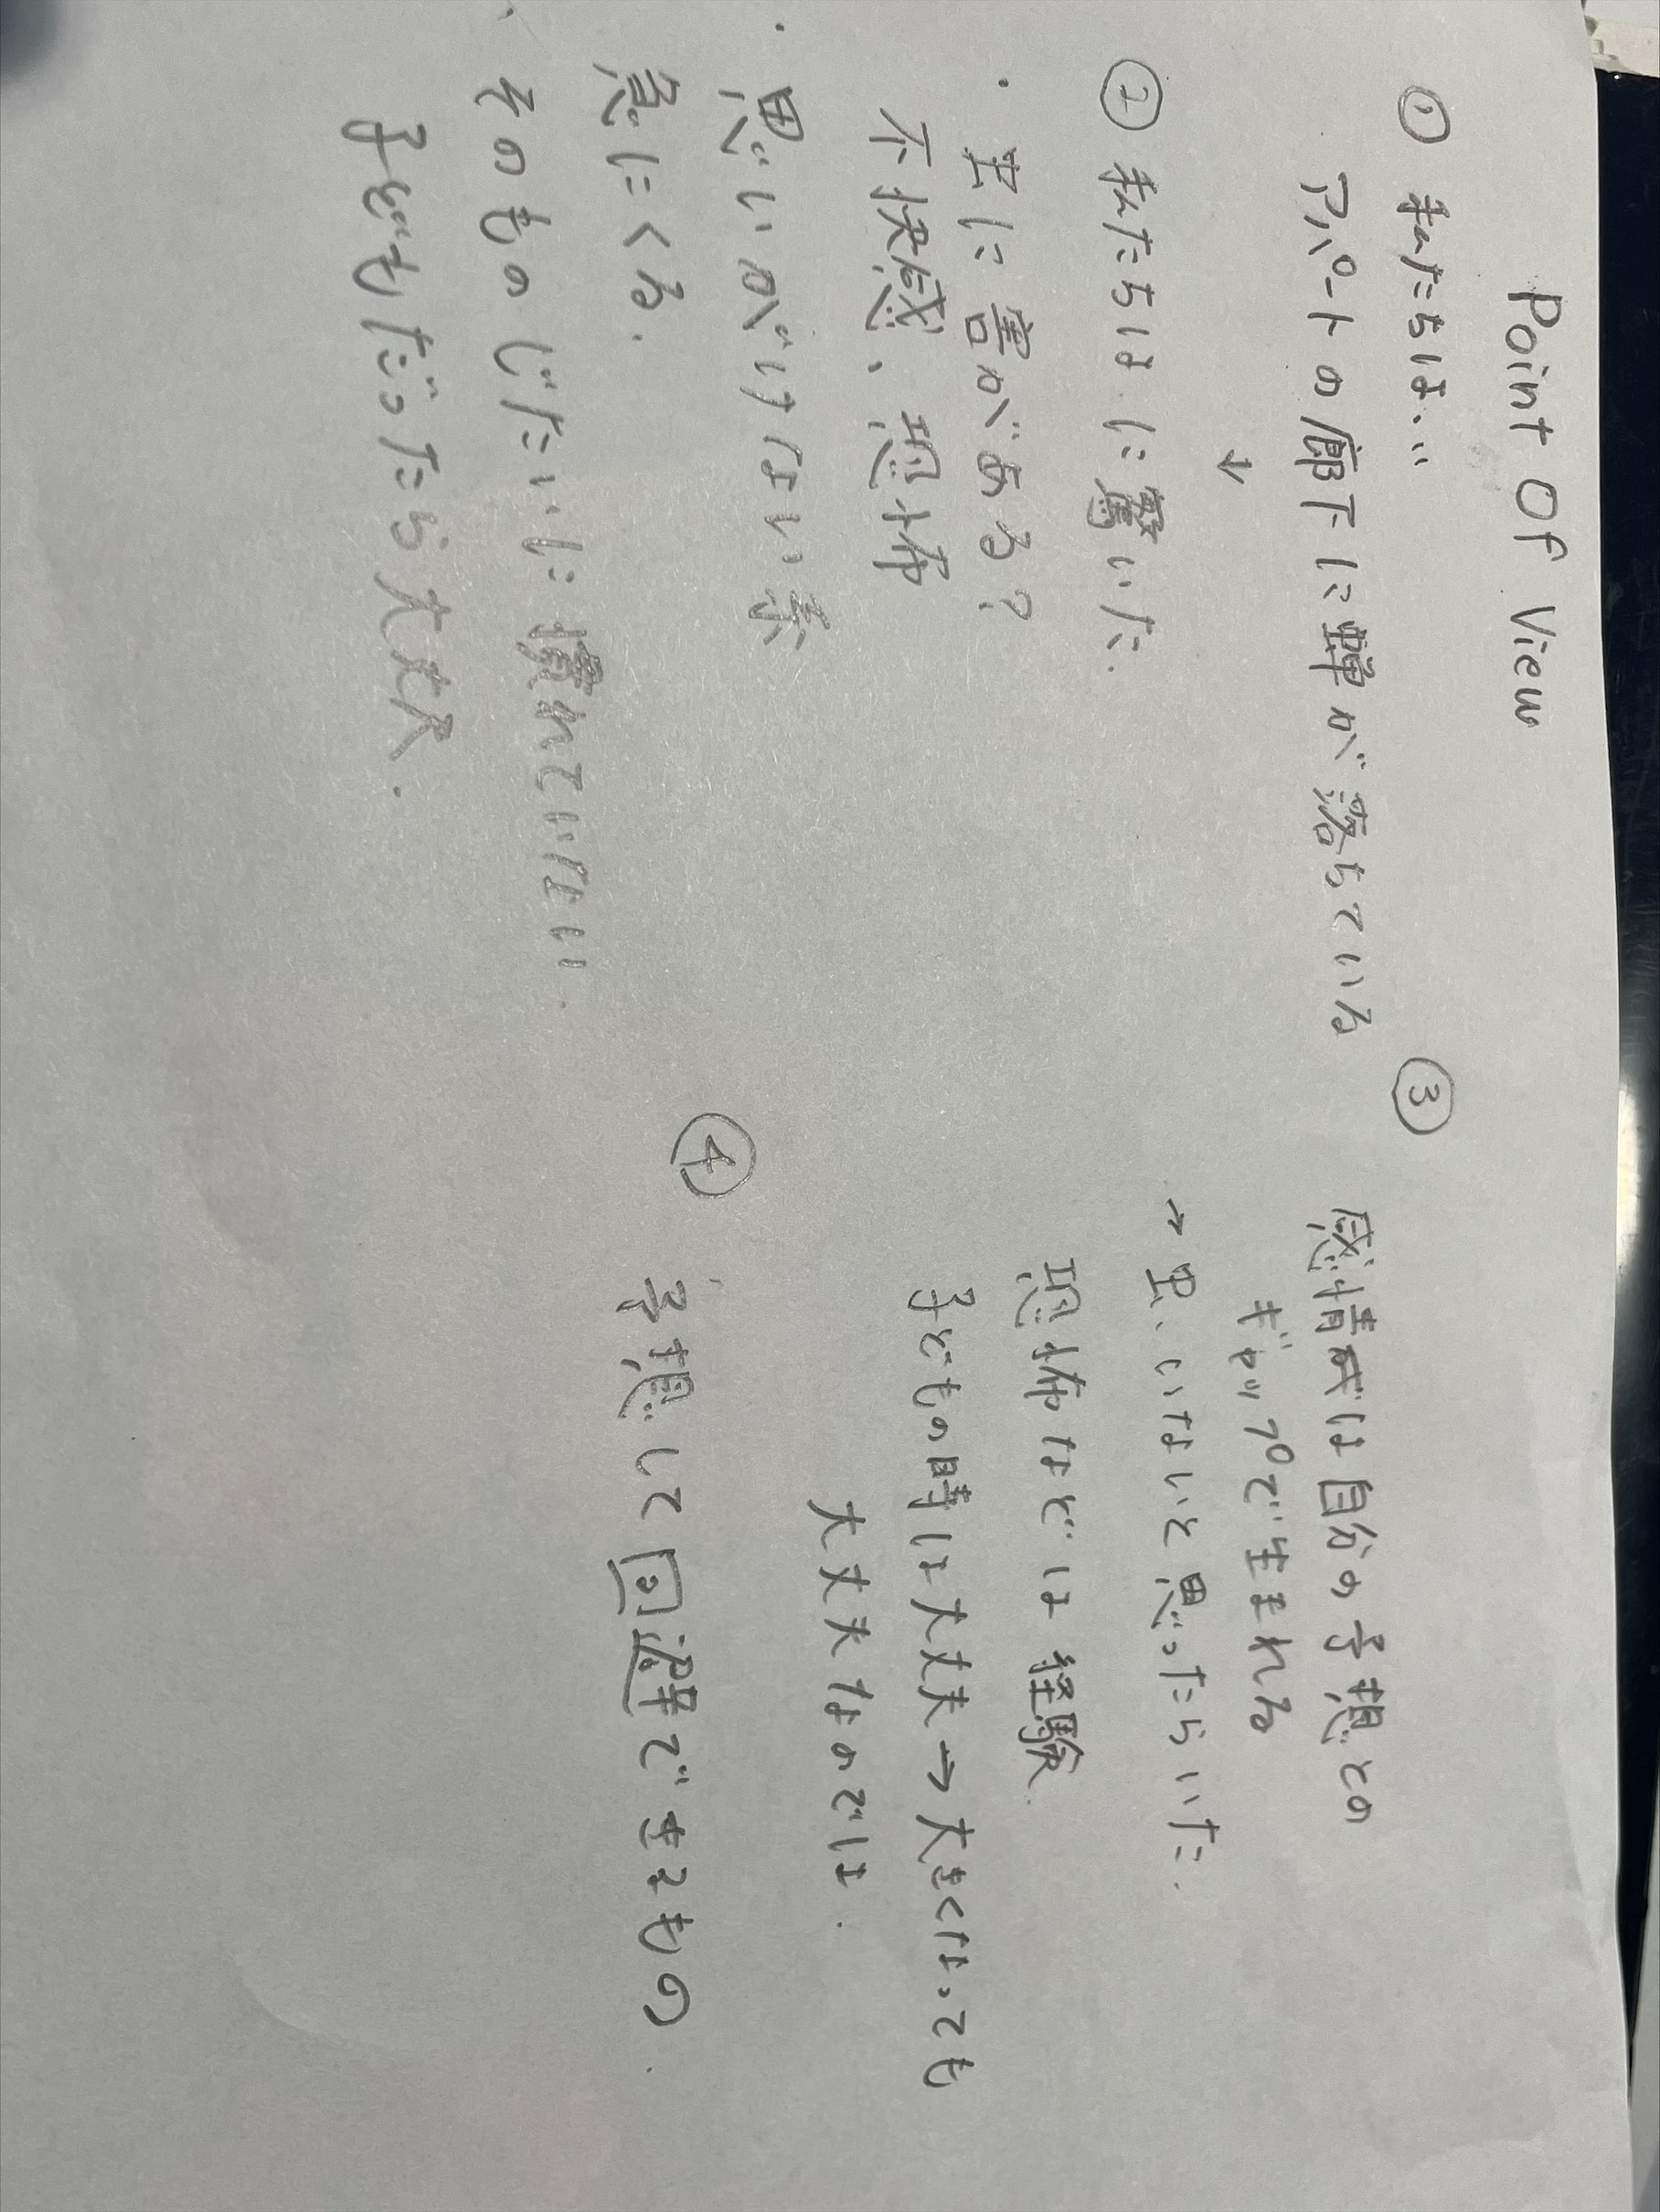 Point Of View
① 私たちは…
アパートの廊下に蝉が落ちている
↓
② 私たちは に驚いた.
・ 虫に害がある?
不快感、恐怖
・ 思いがけない
急にくる.
、 そのものじたいに慣れていない.
子どもだったら大丈夫.
③ 感情は自分の予想との
ギャップで生まれる
→ 虫、いないと思ったらいた.
恐怖などは 経験.
子どもの時は大丈夫→大きくなっても
大丈夫なのでは.
④ 予想して 回避できるもの.